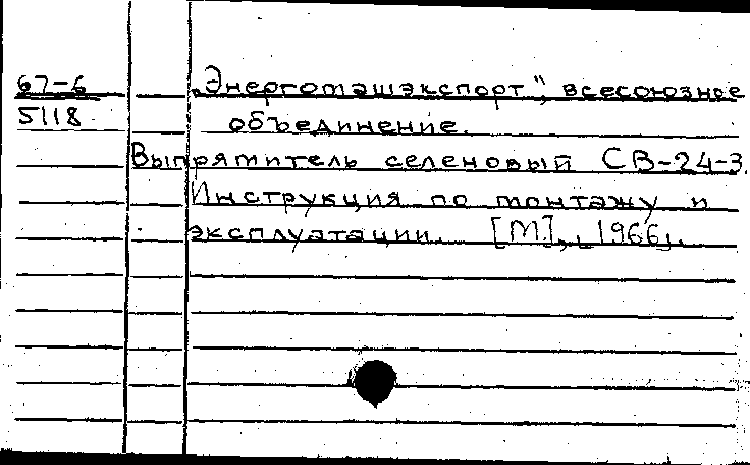 67-6 "Энергомашэкспорт", всесоюзное
5118 объединение.
Выпрямитель селеновый СВ-24-3.
Инструкция по монтажу и
эксплуатации. [М.], [1966].